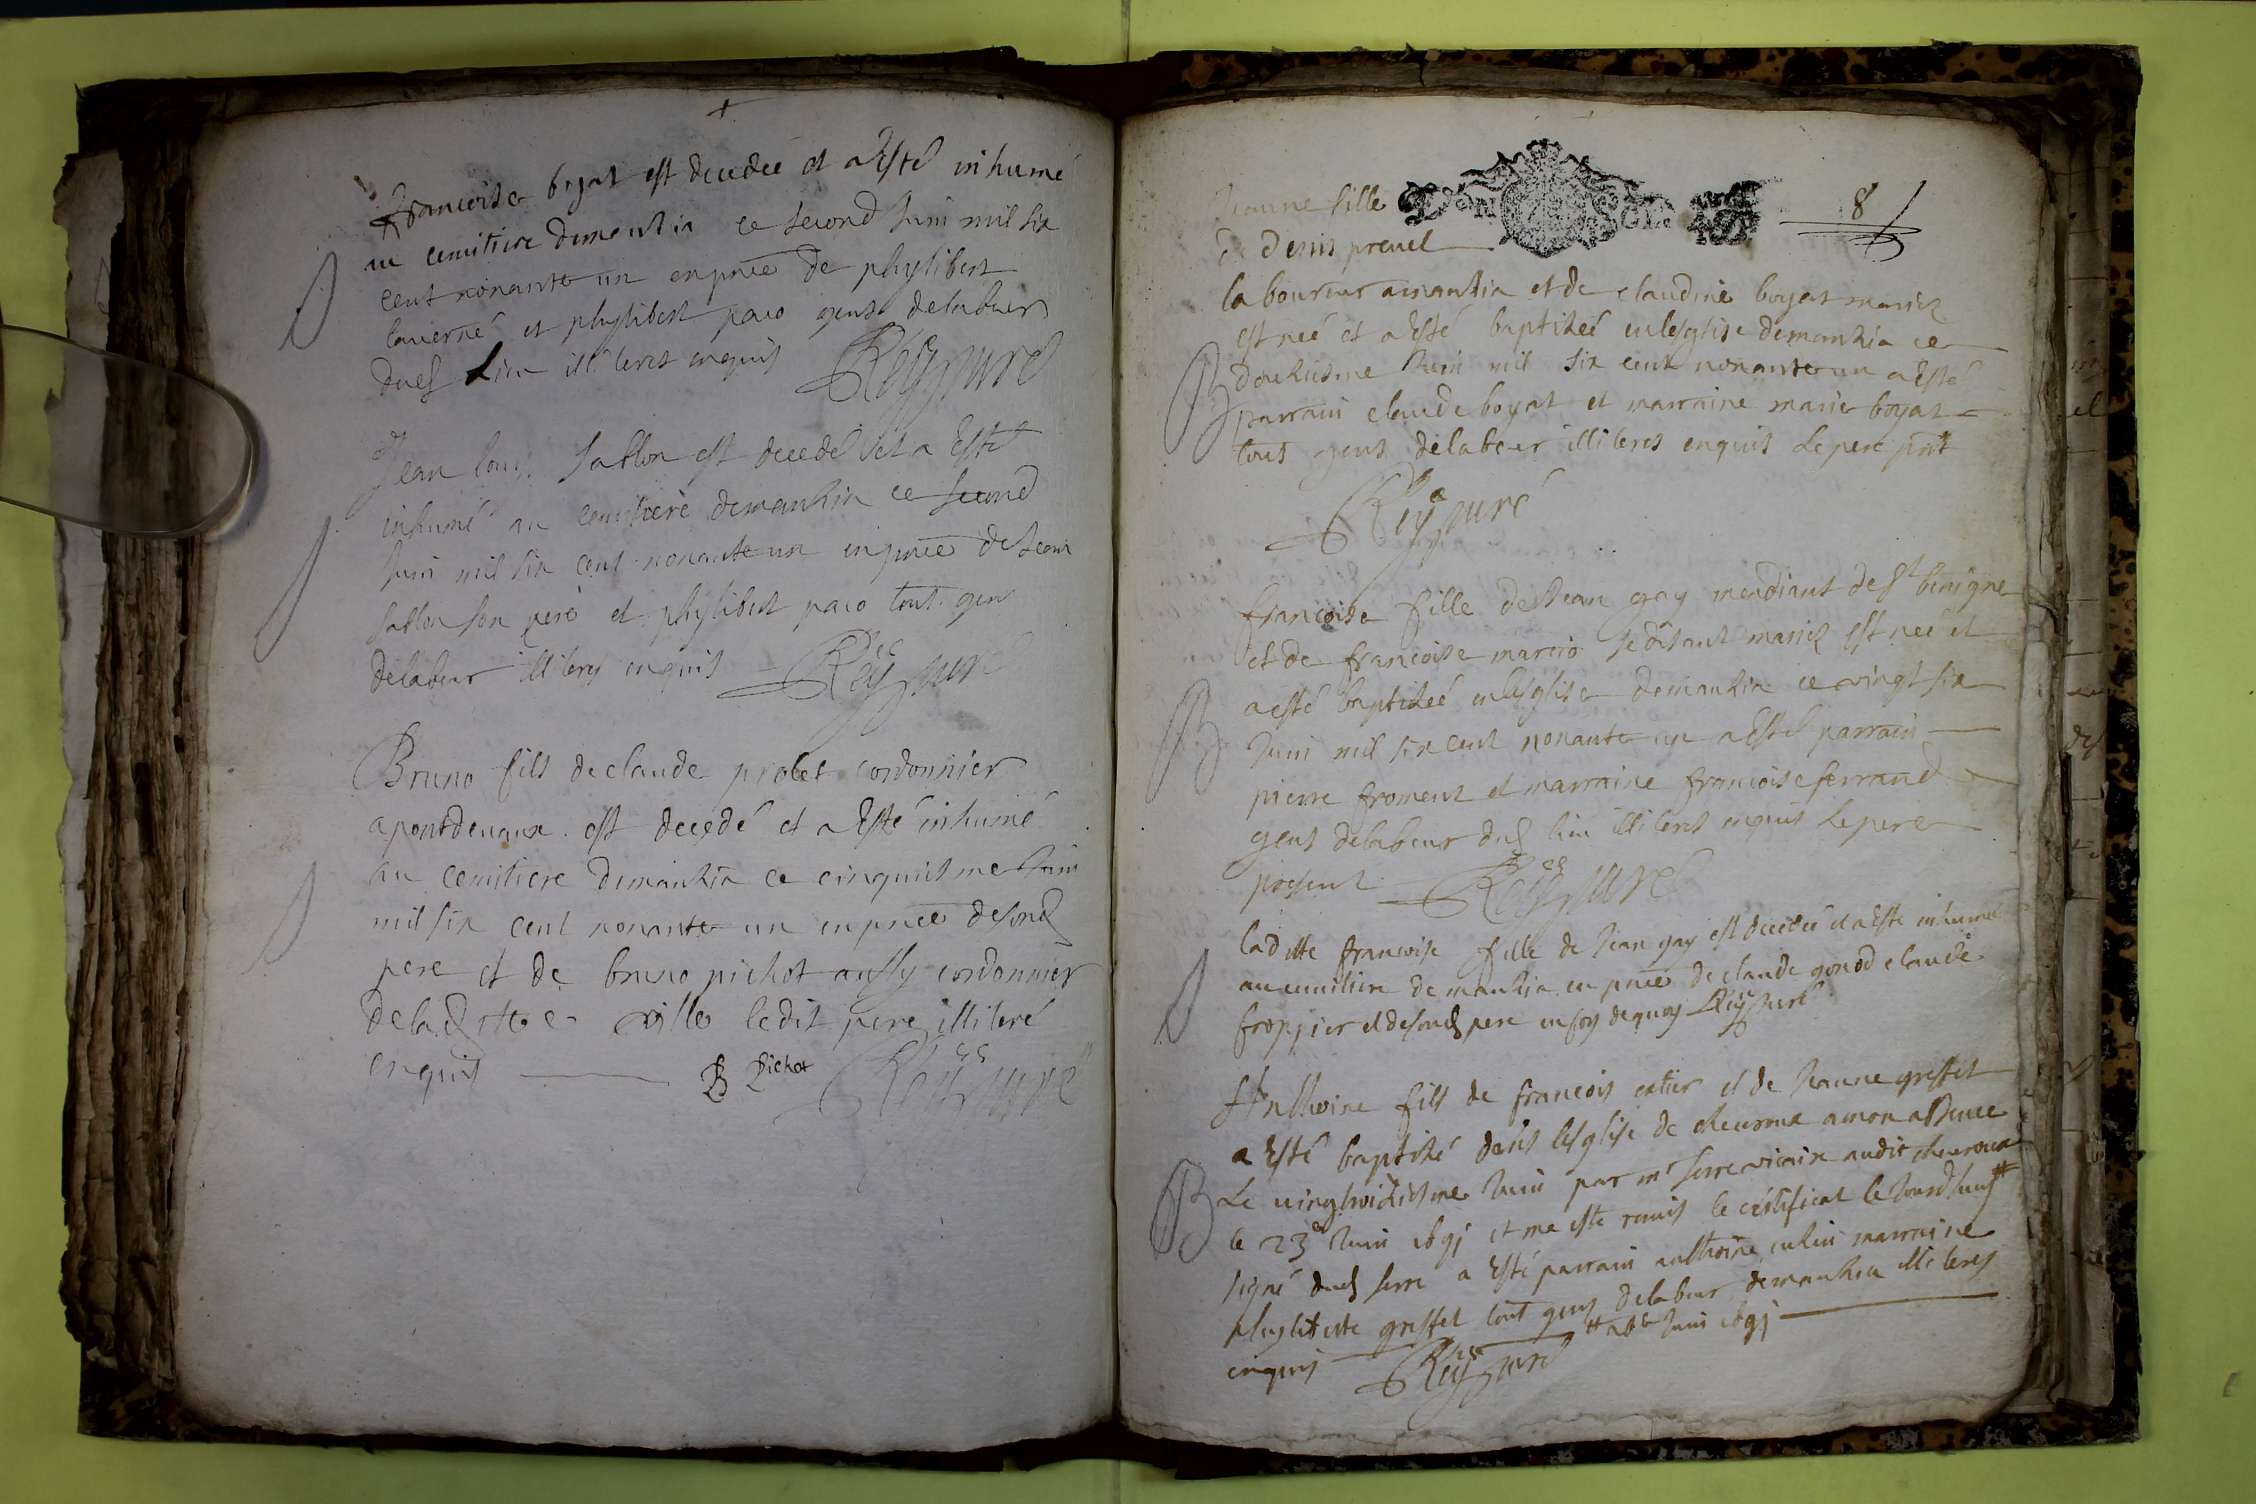 francoise boyat est decedée et a Esté inhumé
au cemitiere demantzia ce second Juin mil six
cent nonante un en pnce de phylibert
lauerné et phylibert paco gens delabeur
dud lieu illiteres enquis Reÿ curé
Jean Sablon est decedé et a Esté
inhumé au cemitiere demantzia ce second
Juin mil six cent nonante un en pnce de Jean
Sablon son pere et phylibert paco tout gens
delabeur illiteres enquis Reÿ curé
Bruno fils de claude probet cordonnier
a pontdeuaux est decedé et a Esté inhumé
au cemitiere demantzia ce cinquiesme Juin
mil six cent nonante un en pnce desond
pere et de bruno pichot aussy cordonnier
delad ville ledit pere illiteré
enquis B Pichot Reÿ curé
8
Jeanne fille
de denis preuel
laboureur amantzia et de claudine boyat mariez
est neé et a Esté baptizeé en lesglise demantzia ce
douziesme Juin mil six cent nonante un a Esté
parrain claude boyat et marraine marie boyat
tous gens delabeur illiteres enquis Le pere pnt
Reÿ curé
francoise fille de Jean gay mendiant de St benigne
et de francoise marció se disant mariez est neé et
a esté baptizeé en lesglise demantzia ce vingt six
Juin mil six cent nonante un a Esté parrain
pierre froment et marraine francoise ferrand
gens delabeur dud lieu illiteres enquis Le pere
present Reÿ curé
laditte francoise fille de Jean gay est decedeé et a Este inhumé
au cemitiere demantzia en pnce de claude gonod claude
froppier et desond pere en foy dequoy Reÿ curé
Anthoine fils de francois catier et de Jeanne greffet
a Esté baptizé dans lesglise de cheuroux a mon absence
Le Juin par mr serre vicaire audit cheuroux
le 23e Juin 1691 et ma este remis le certificat le Jourdhuy #
signé dud serre a Esté parrain anthoine marraine
phyliberte greffet tout gens delabeur demantzia illiteres
enquis Reÿ curé # Juin 1691